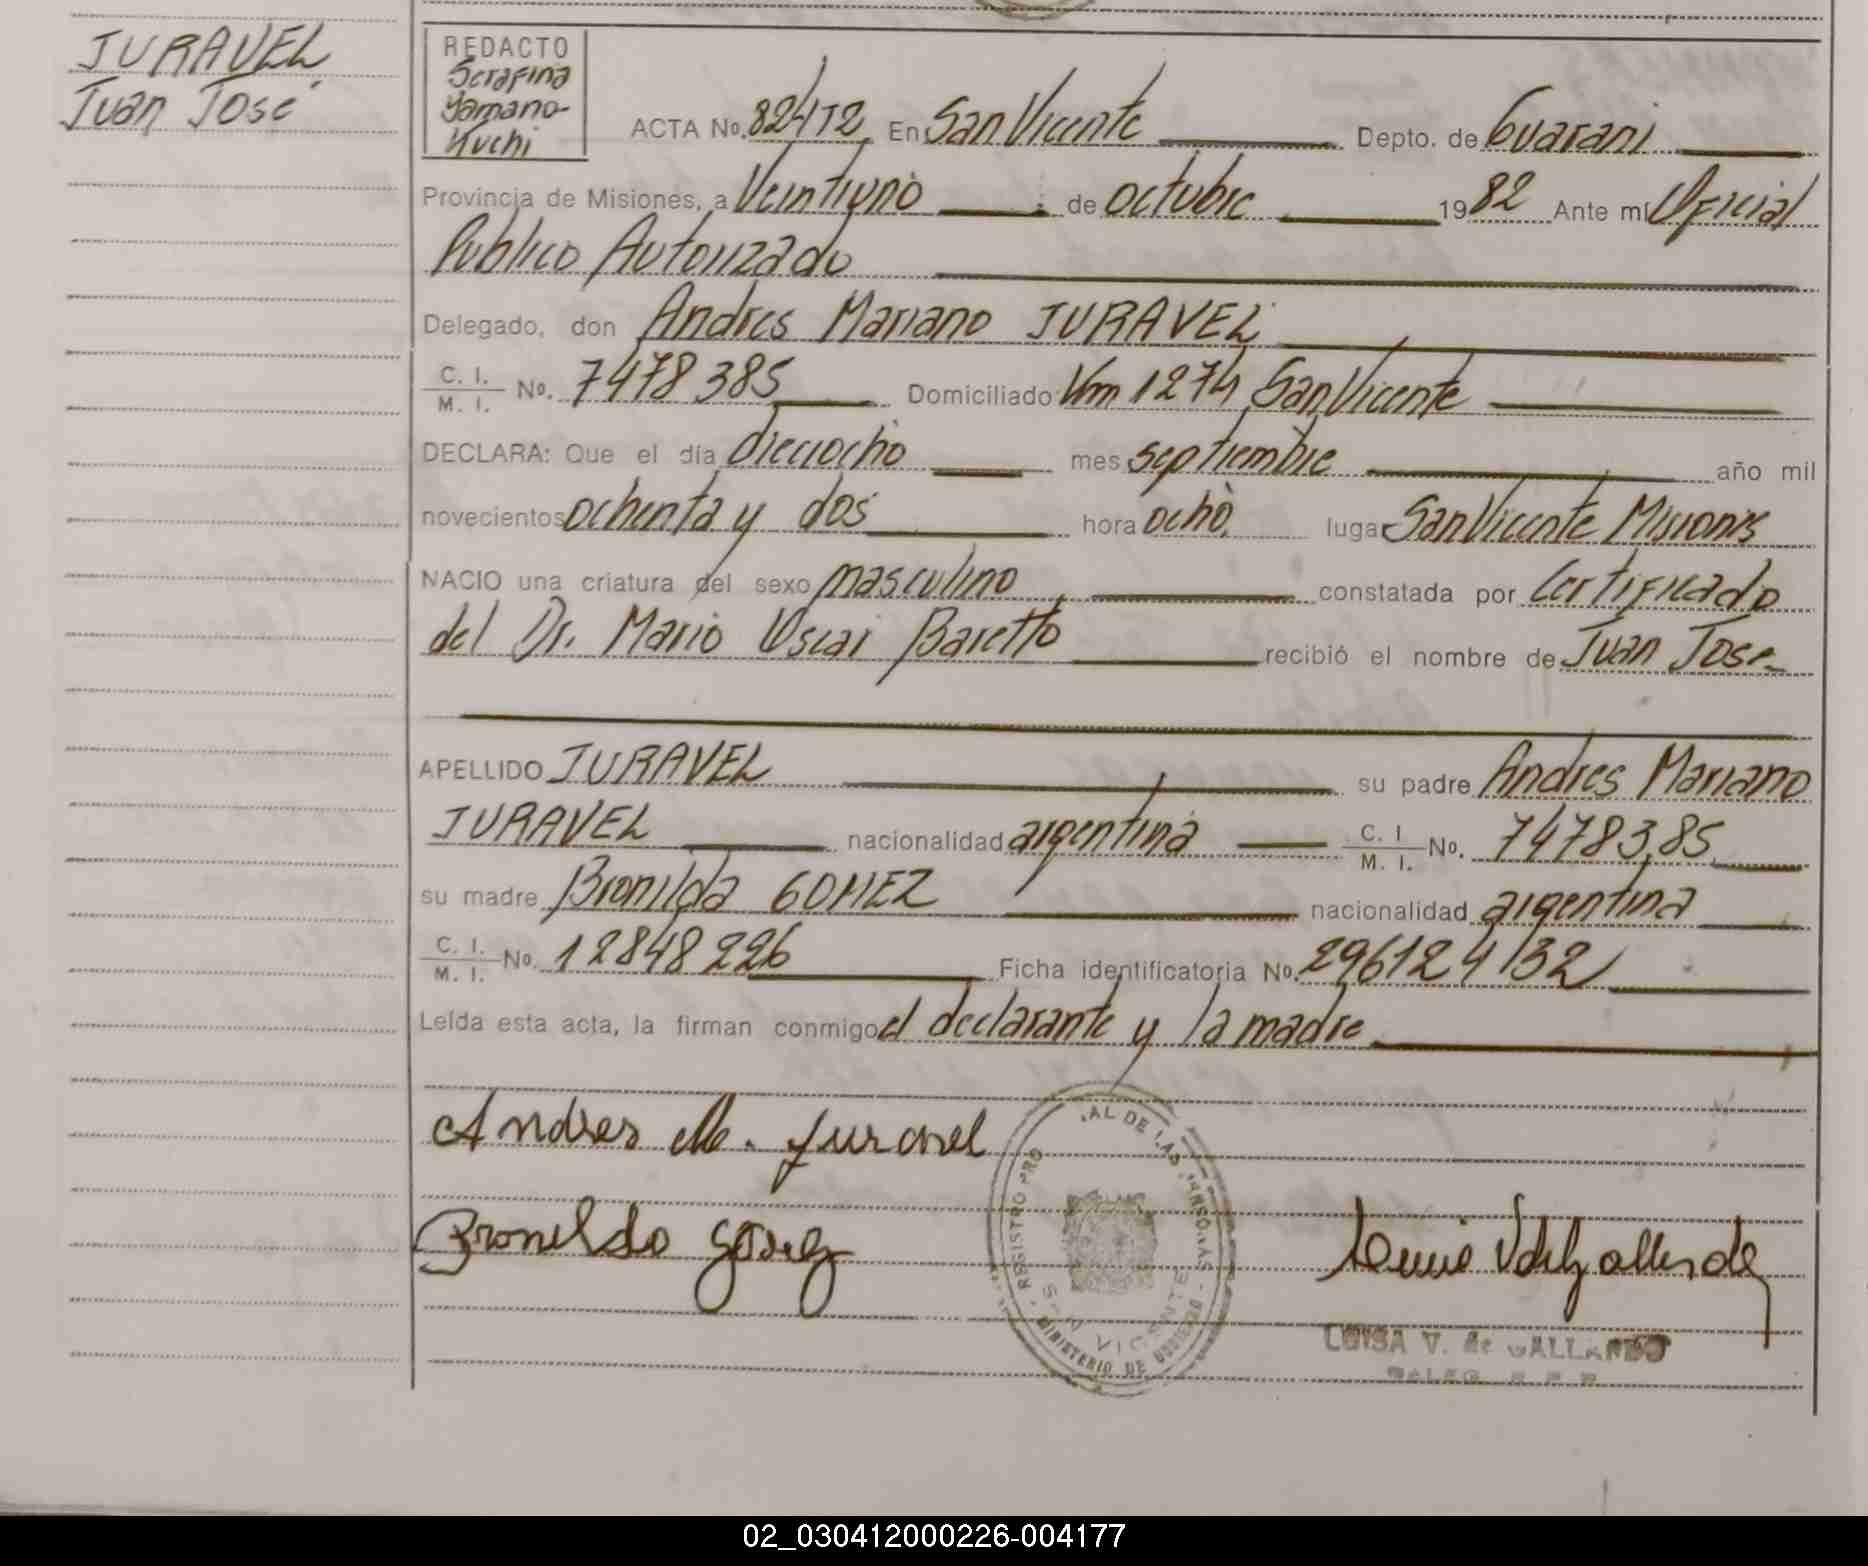 JURAVEL
Juan José
REDACTO
Serafina
Yamano-
Kuchi
ACTA No. 824T2 En San Vicente Depto. de Guarani
Provincia de Misiones, a Veintiuno de octubre 1982 Ante mí Oficial
Publico Autorizado
Delegado, don Andres Mariano JURAVEL
C. I.
M. I. No. 7478385 Domiciliado Km 1274 San Vicente
DECLARA: Que el día dieciocho mes septiembre año mil
novecientos ochenta y dos hora ocho lugar San Vicente Misiones
NACIO una criatura del sexo masculino constatada por Certificado
del Dr. Mario Oscar Baretto recibió el nombre de Juan Jose
APELLIDO JURAVEL su padre Andres Mariano
JURAVEL nacionalidad argentina C. I. M. I. No. 7478385
su madre Bronilda GOMEZ nacionalidad argentina
C. I.
M. I. No. 12848226 Ficha identificatoria No. 296124132
Leída esta acta, la firman conmigo el declarante y la madre
Andres M. Juravel
Bronilda Gomez
REGISTRO PRO AL DE LAS PERSONAS
SAN VICENTE
MINISTERIO DE GOBIERNO
LUISA V. de GALLARDO
02_030412000226-004177